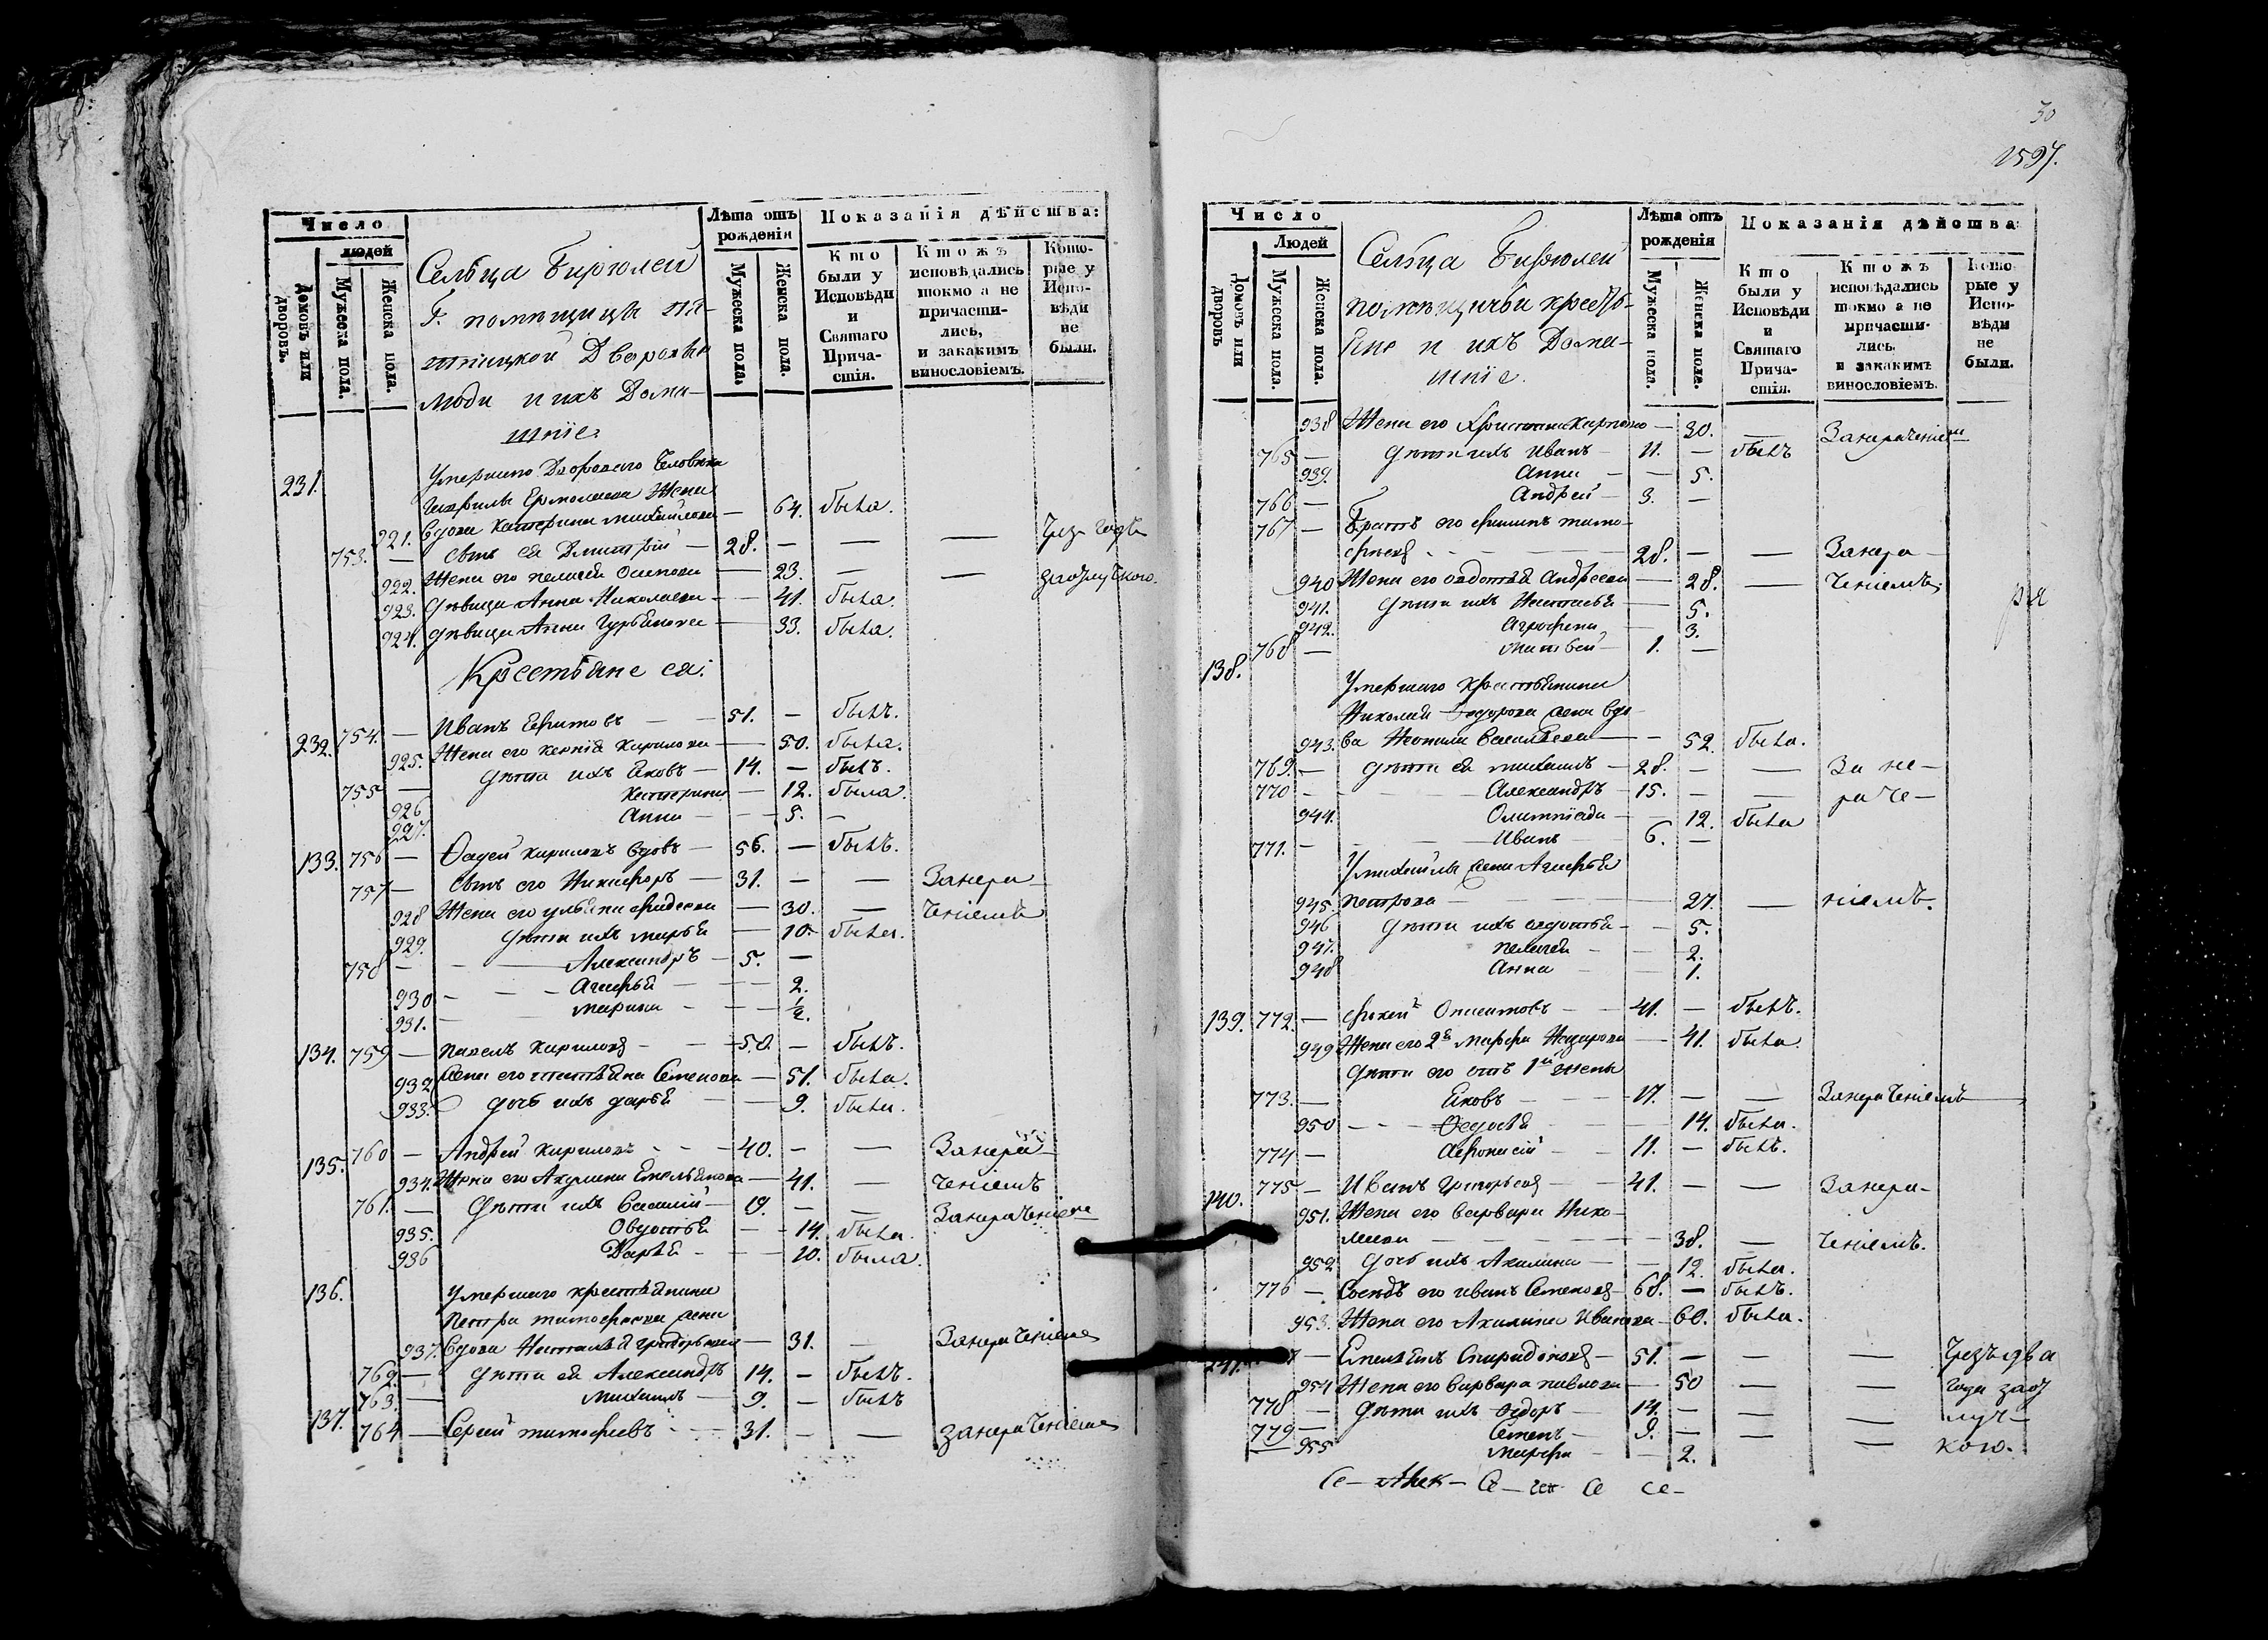 Число
Лѣта отъ рожденія
Показанія дѣйства:
людей
Домовъ или дворовъ.
Мужеска пола.
Женска пола.
Сельца Бирюлей
Г. помѣщицы
Дворовые
люди и ихъ Дома-
шніе
Мужеска пола.
Женска пола.
Кто были у Исповѣди и Святаго Причастія.
Ктожъ исповѣдались токмо а не причастились, и закакимъ винословіемъ.
Которые у Исповѣди не были.
231. Умершаго Двороваго Человѣка
Гаврилы Ермолаева Жена
921. вдова Катерина михайлова — 64. была.
753. — сынъ ея Димитрій — 28. — — — Чрез годъ
922. Жена его пелагея Осипова — 23. — — заотлучкою.
923. дѣвица Анна Николаева — 41. была.
924. дѣвица Анна — 33. была.
Крестьяне ея:
232. 754. — Иванъ Ефимовъ — 51. — былъ.
925. Жена его Кирилова — 50. была.
755 — дѣти ихъ Яковъ — 14. — былъ.
926 Катерина — 12. была.
927. Анна — 5. —
133. 756 — Фадей Кириловъ вдовъ — 56. — былъ.
757 — сынъ его Никифоръ — 31. — — Занера-
928 Жена его ульяна — 30. — ченіемъ
929. дѣти ихъ марья — 10. была.
758 — Александръ — 5. —
930 — Агафья — 2.
931. — марина — 1/2.
134. 759 — павелъ Кириловъ — 50. — былъ.
932 жена его Семенова — 51. была.
933. дочь ихъ дарья — 9. была.
135. 760 — Андрей Кириловъ — 40. — — Занера-
934. Жена его Акулина Емельянова — 41. — ченіемъ
761. — дѣти ихъ Василій — 19. — — Занераченіемъ
935. Овдотья — 14. была.
936 Дарья — 10. была.
136. Умершаго крестьянина
петра тимофеева жена
937. вдова Наталья григорьева — 31. — Занераченіемъ
762. — дѣти ея Александръ 14. — былъ.
763. — михаилъ — 9. — былъ
137. 764 — Сергей тимофеевъ — 31. — — занераченіемъ
30
1597.
Число
Лѣта отъ рожденія
Показанія дѣйства
Людей
Домовъ или дворовъ
Мужеска пола.
Женска пола.
Сельца Бирюлей
помѣщичьи кресть-
яне и ихъ Дома-
шніе.
Мужеска пола.
Женска пола.
Кто были у Исповѣди и Святаго Причастія.
Ктожъ исповѣдались токмо а не причастились. и закакимъ винословіемъ.
Которые у Исповѣди не были.
938 Жена его Карпова — 30. — Занераченіемъ
765 — дѣти ихъ Иванъ — 11. — былъ
939. Анна — — 5.
766 — Андрей — 3. —
767 — братъ его филипъ тимо-
фѣевъ — 28. — — Занера-
940 Жена его овдотья Андреева — 28. — ченіемъ
941. дѣти ихъ Наталья — 5.
942. Аграфена — 3.
768 — матвей — 1. —
138. Умершаго крестьянина
Николая Федорова жена вдо-
943. ва Неонила Васильева — 52. была.
769. — дѣти ея михаилъ — 28. — — За не-
770 — Александръ — 15. — — раче-
944. Олимпіада — 12. была
771. — Иванъ — 6. —
У михайлы жена Агафья
945. петрова — 27. — ніемъ.
946 дѣти ихъ овдотья — 5.
947. пелагея — 2.
948 Анна — 1.
139. 772. — Анисимовъ — 41. — былъ.
949 Жена его 2я марфа Назарова — 41. была.
дѣти его отъ 1й жены
773. — Яковъ — 17. — — Занераченіемъ
950 — Федосья — 14. была.
774 — Афонасій — 11. — былъ.
140. 775 — Иванъ Григорьевъ — 41. — — Занера-
951. Жена его варвара Нико-
лаева — 38. — ченіемъ.
952 дочь ихъ Акилина — 12. была.
776 — Сосѣдъ его иванъ Семеновъ — 68. — былъ.
953. Жена его Акилина Иванова — 60. была.
141. — Емельянъ Спиридоновъ — 51. — — — Чрезъ два
954 Жена его варвара павлова — 50 — — года заот
778 — дѣти ихъ Федоръ — 14. — — — луч-
779 — Семенъ — 9. — — — кою.
955 марфа — 2.